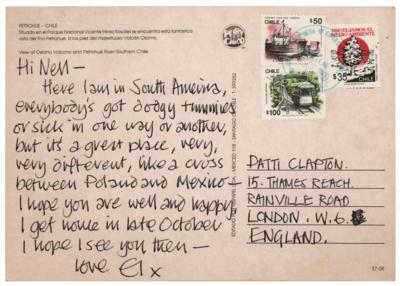 PETROHUE - CHILE
Situado en el Parque Nacional Vicente Pérez Rosales se encuentra esta fantástica
vista del Río Petrohue, a los pies del majestuoso Volcán Osorno.
View of Osorno Volcano and Petrohué River-Southern Chile
Hi Nell -
Here I am in South America,
everybody's got dodgy tummies
or sick in one way or another,
but it's a great place, very,
very different, like a cross
between Poland and Mexico -
I hope you are well and happy
I get home in late October
I hope I see you then -
love El x
$50
CHILE
CHILE
$100
PROTEJAMOS EL
MEDIO AMBIENTE
$35
CHILE
PATTI CLAPTON.
15. THAMES REACH.
RAINVILLE ROAD
LONDON. W.6.
ENGLAND.
37-08